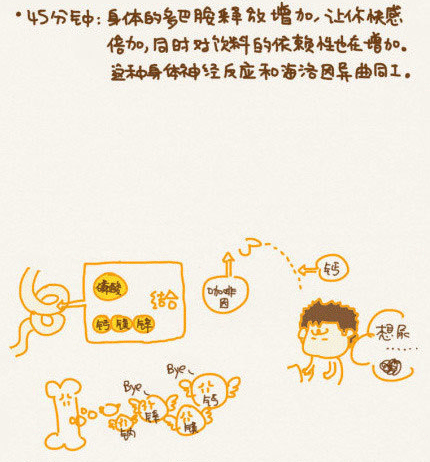 •45分钟：身体的多巴胺释放增加，让你快感
倍加，同时对饮料的依赖性也在增加。
这种身体神经反应和海洛因异曲同工。
钙
磷酸
结合
咖啡
因
钙 镁 锌
想尿
......
Bye
Bye
钙
锌
钠
镁